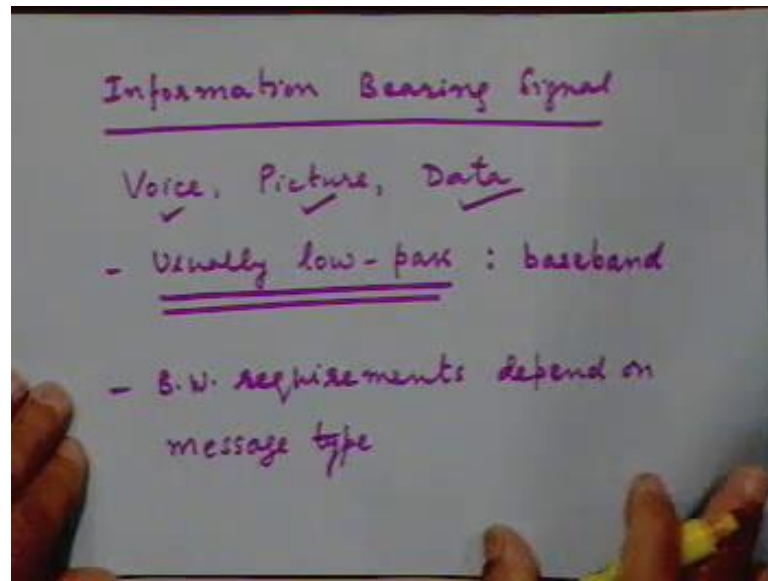 Information Bearing Signal
Voice, Picture, Data
- Usually low-pass : baseband
- B.W. requirements depend on
message type